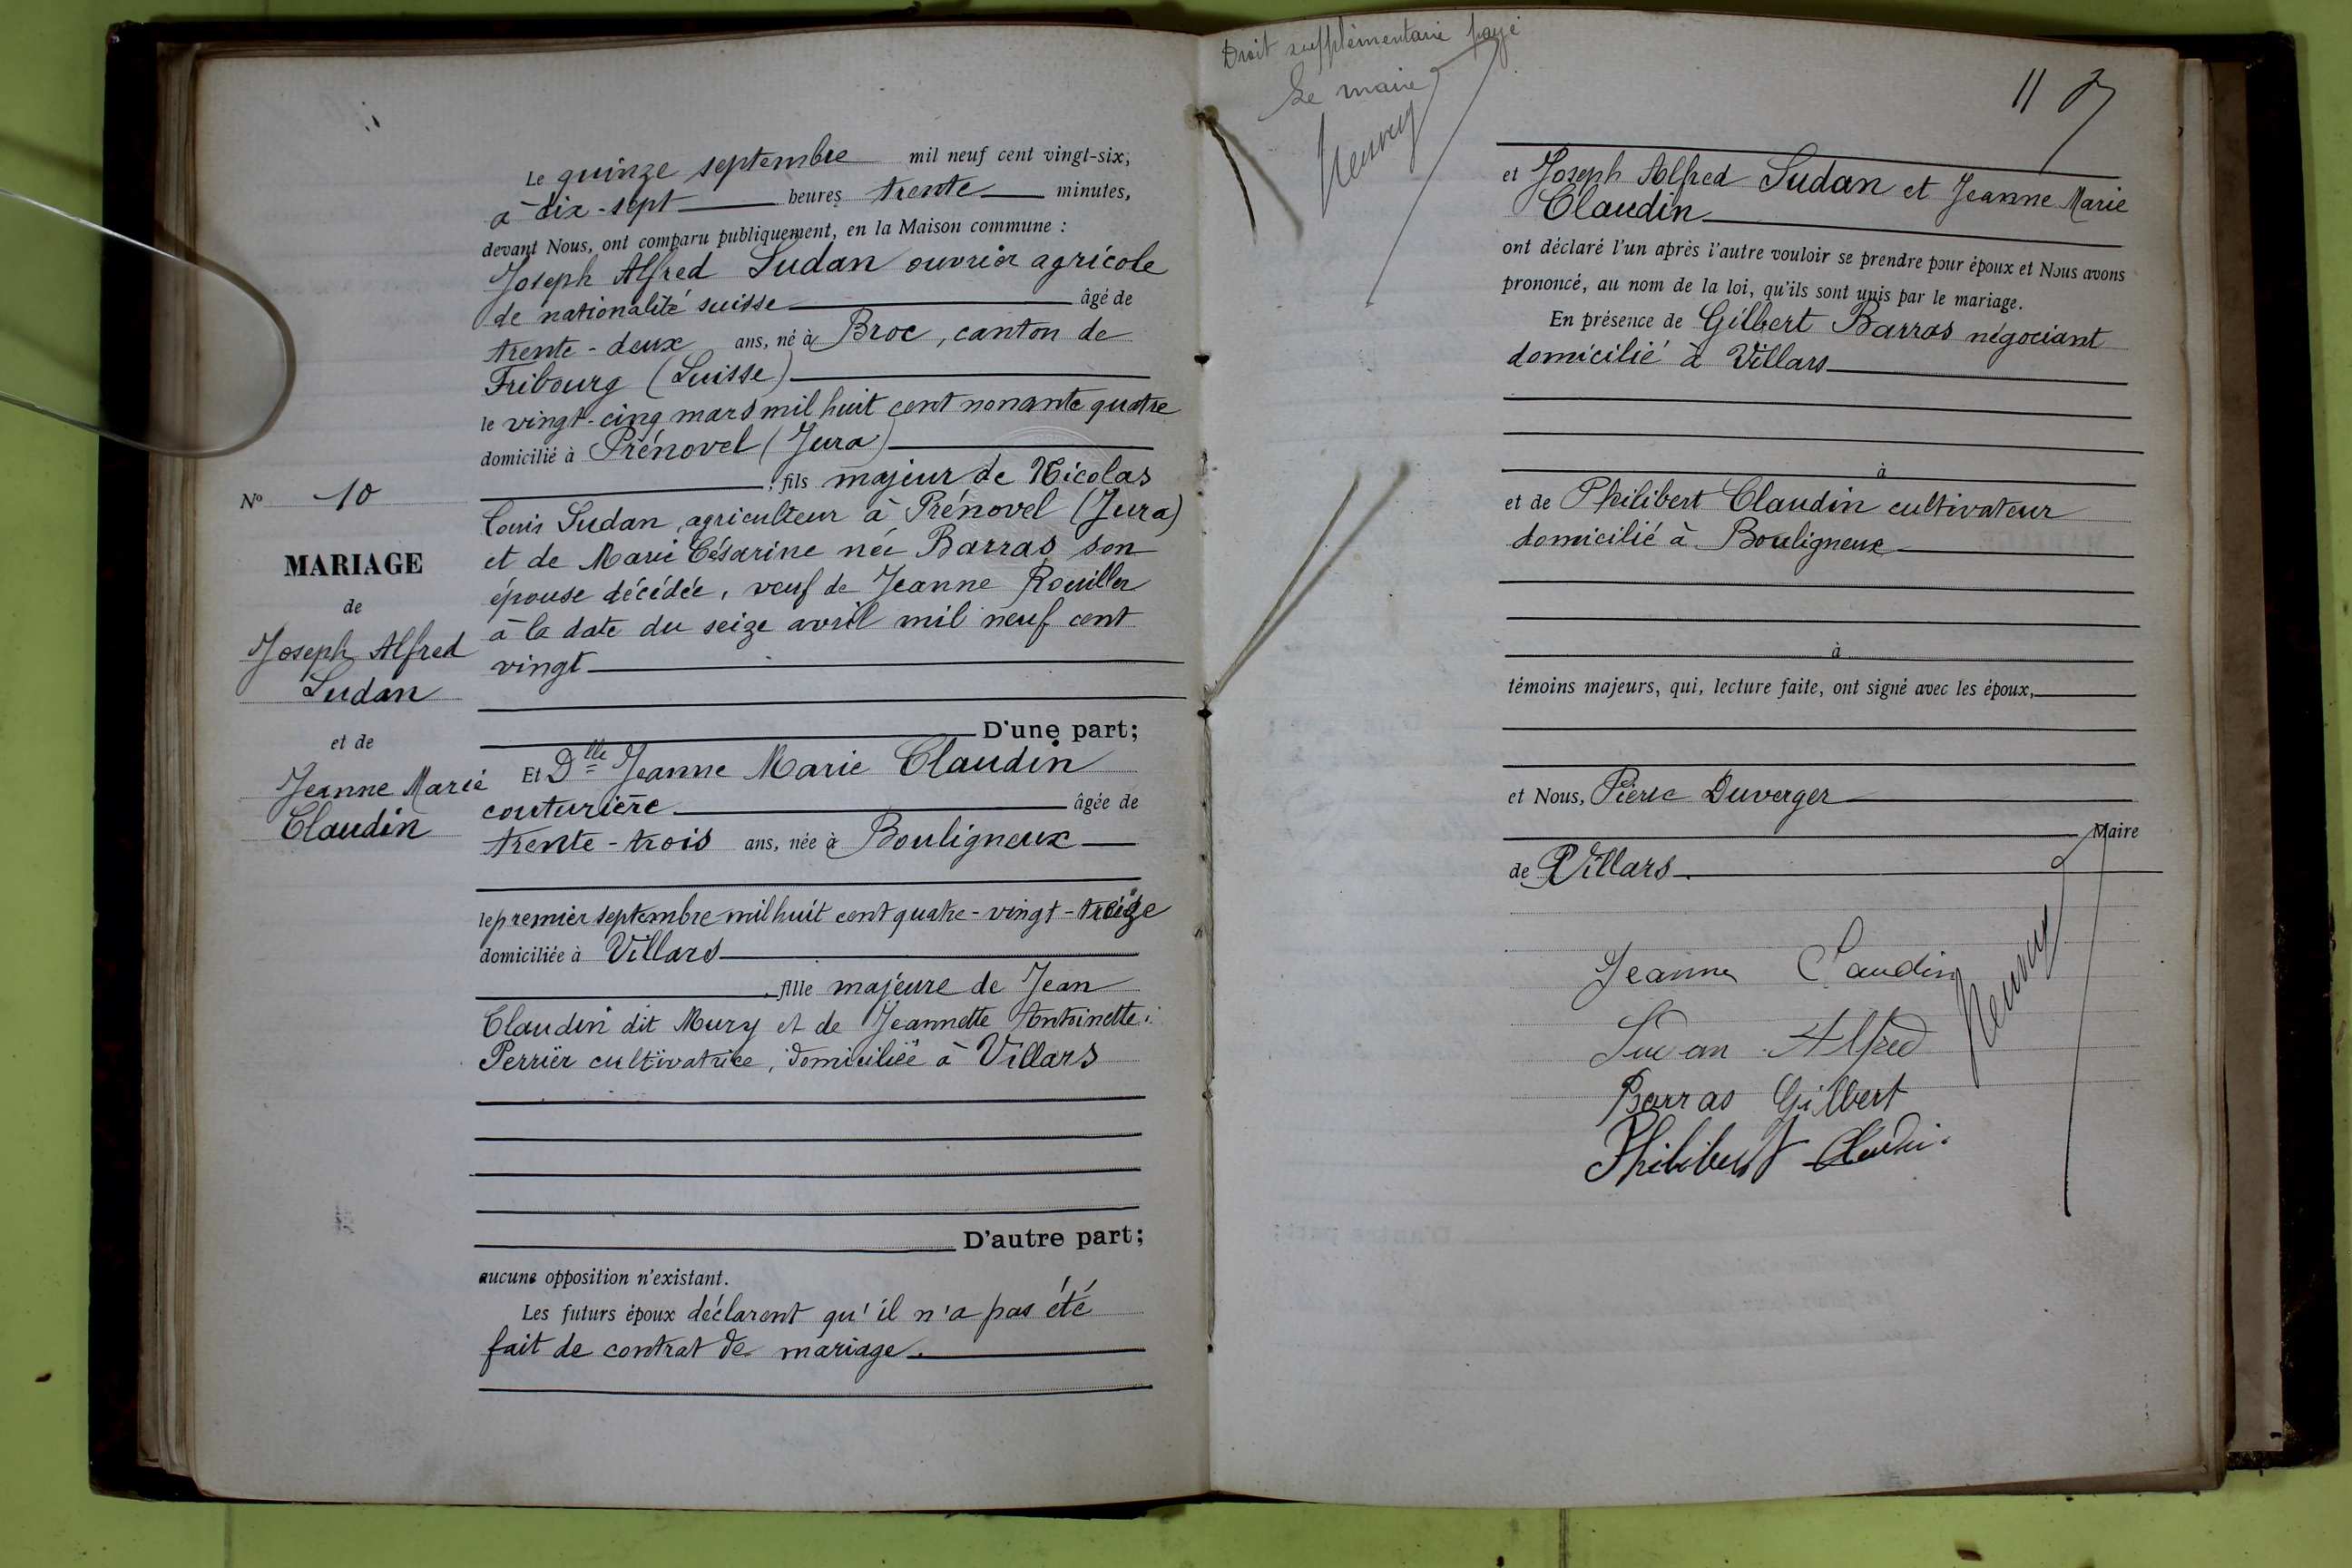 Le quinze septembre mil neuf cent vingt-six,
à dix-sept heures trente minutes,
devant Nous, ont comparu publiquement, en la Maison commune :
Joseph Alfred Sudan ouvrier agricole
de nationalité suisse âgé de
trente-deux ans, né à Broc, canton de
Fribourg (Suisse)
le vingt-cinq mars mil huit cent nonante quatre
domicilié à Prénovel (Jura)
, fils majeur de Nicolas
Louis Sudan, agriculteur à Prénovel (Jura)
et de Marie Césarine née Barras son
épouse décédée, veuf de Jeanne Rouiller
à la date du seize avril mil neuf cent
vingt
D'une part;
Nº 10
MARIAGE
de
Joseph Alfred
Sudan
et de
Jeanne Marie
Claudin
Et Dlle Jeanne Marie Claudin
couturière âgée de
trente-trois ans, née à Bouligneux
le premier septembre mil huit cent quatre-vingt-treize
domiciliée à Villars
, fille majeure de Jean
Claudin dit Mury et de Jeannette Antoinette
Perrier cultivatrice, domiciliée à Villars
D'autre part;
aucune opposition n'existant.
Les futurs époux déclarent qu'il n'a pas été
fait de contrat de mariage.
Droit supplémentaire payé
Le maire
11
et Joseph Alfred Sudan et Jeanne Marie
Claudin
ont déclaré l'un après l'autre vouloir se prendre pour époux et Nous avons
prononcé, au nom de la loi, qu'ils sont unis par le mariage.
En présence de Gilbert Barras négociant
domicilié à Villars
à
et de Philibert Claudin cultivateur
domicilié à Bouligneux
à
témoins majeurs, qui, lecture faite, ont signé avec les époux,
et Nous, Pierre Duverger
Maire
de Villars.
Jeanne Claudin
Sudan Alfred
Barras Gilbert
Philibert Claudin